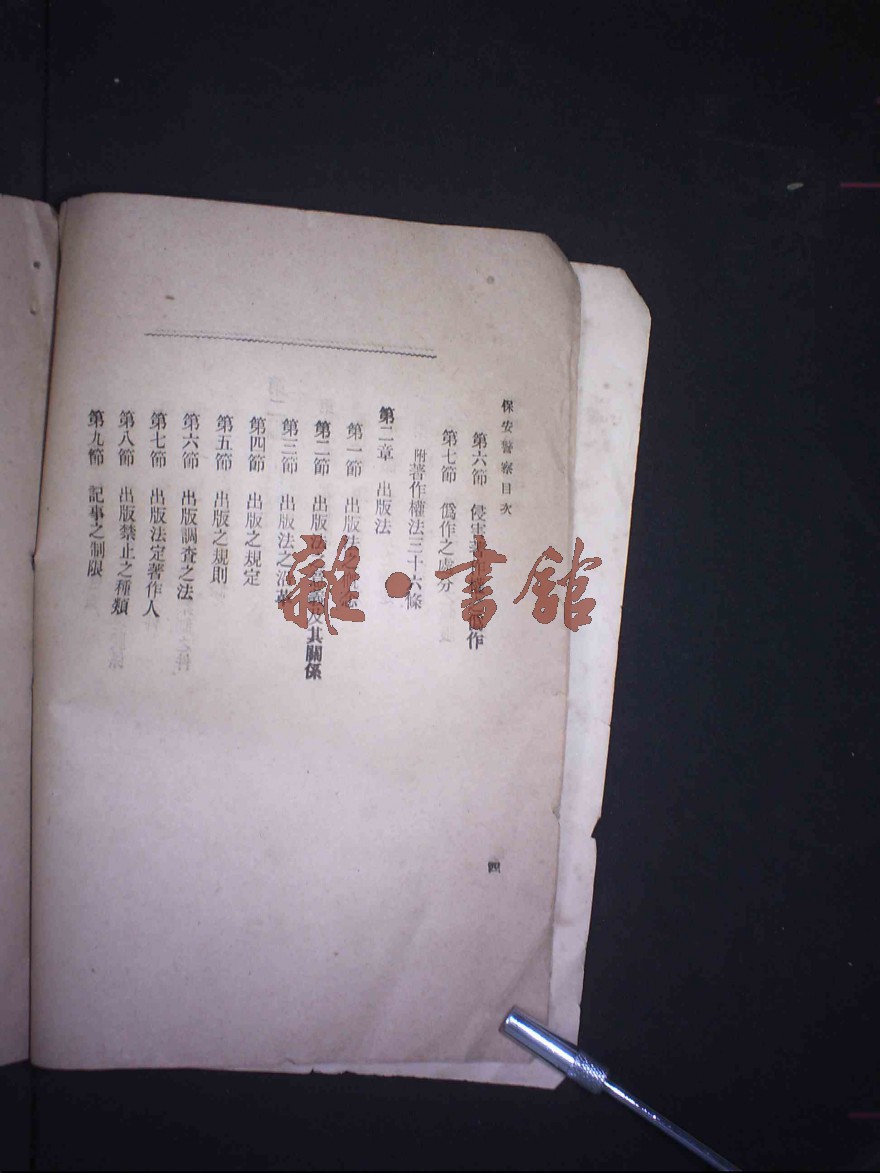 保安警察目次
第六節 侵害著作 偽作
第七節 僞作之處分
附著作權法三十六條
第二章 出版法
第一節 出版法之
第二節 出版法 及其關係
第三節 出版法之沿革
第四節 出版之規定
第五節 出版之規則
第六節 出版調查之法
第七節 出版法定著作人
第八節 出版禁止之種類
第九節 記事之制限
四
雜·書館